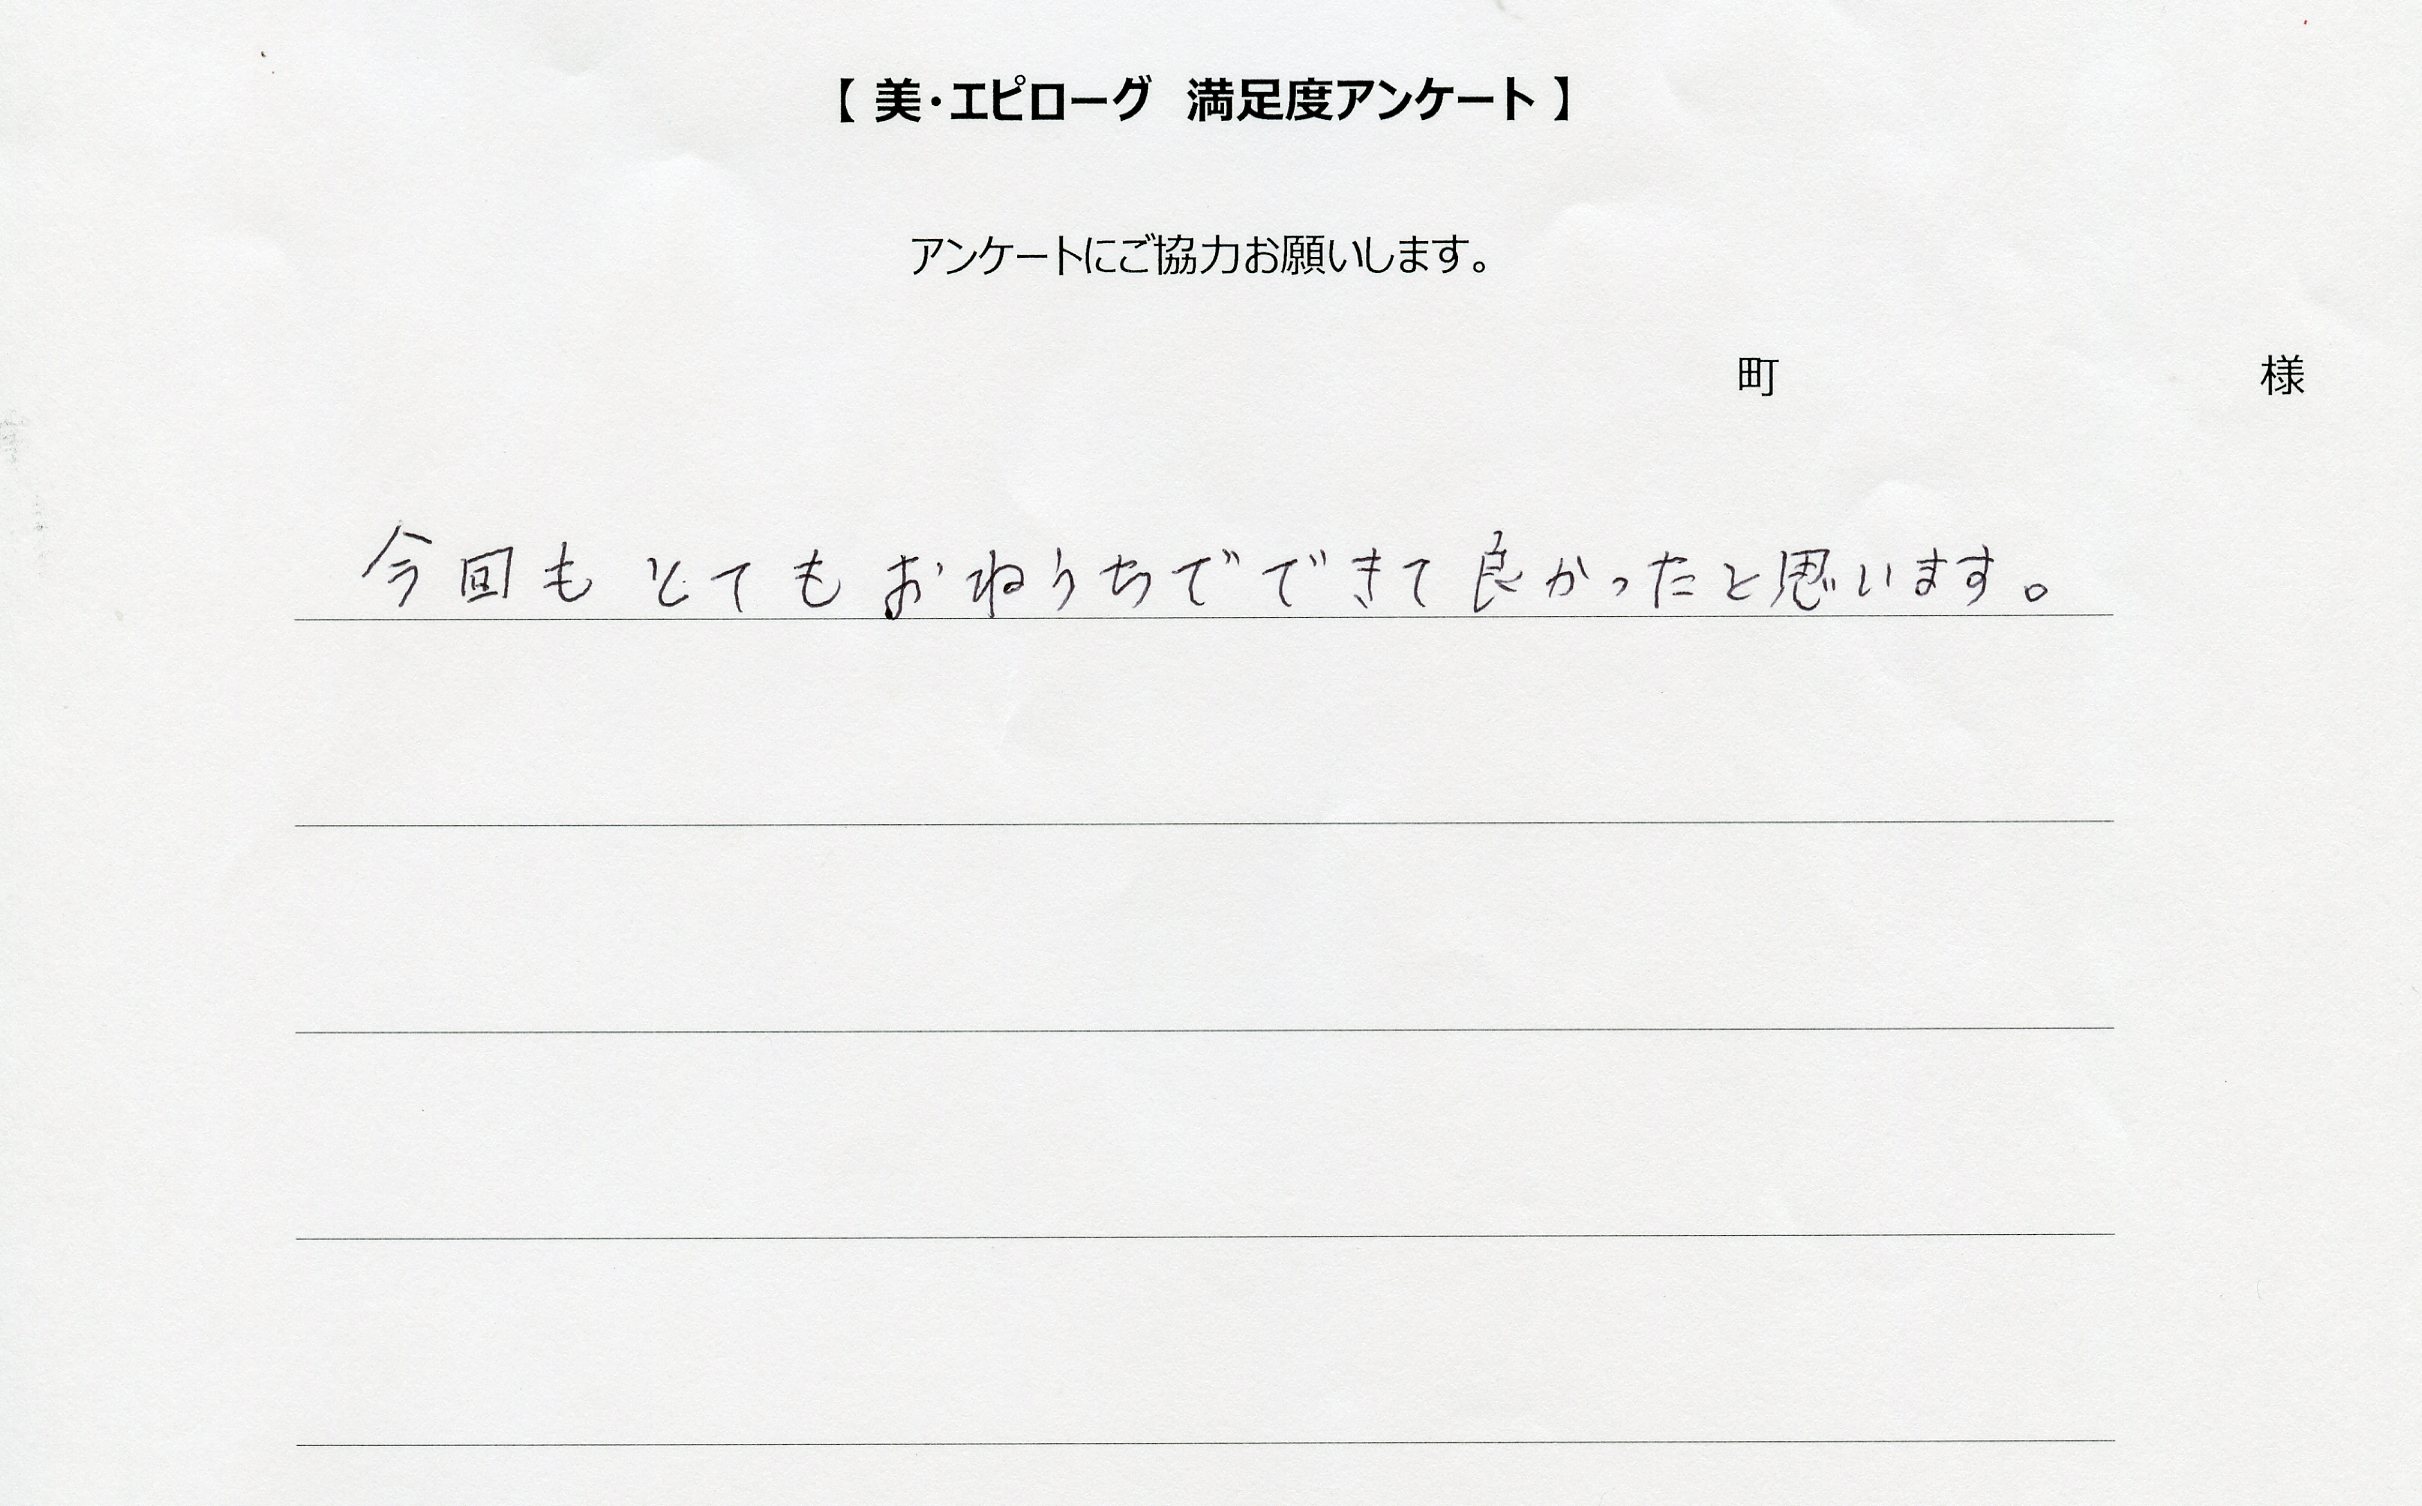 【 美・エピローグ 満足度アンケート 】
アンケートにご協力お願いします。
町 様
今回もとてもおねうちでできて良かったと思います。